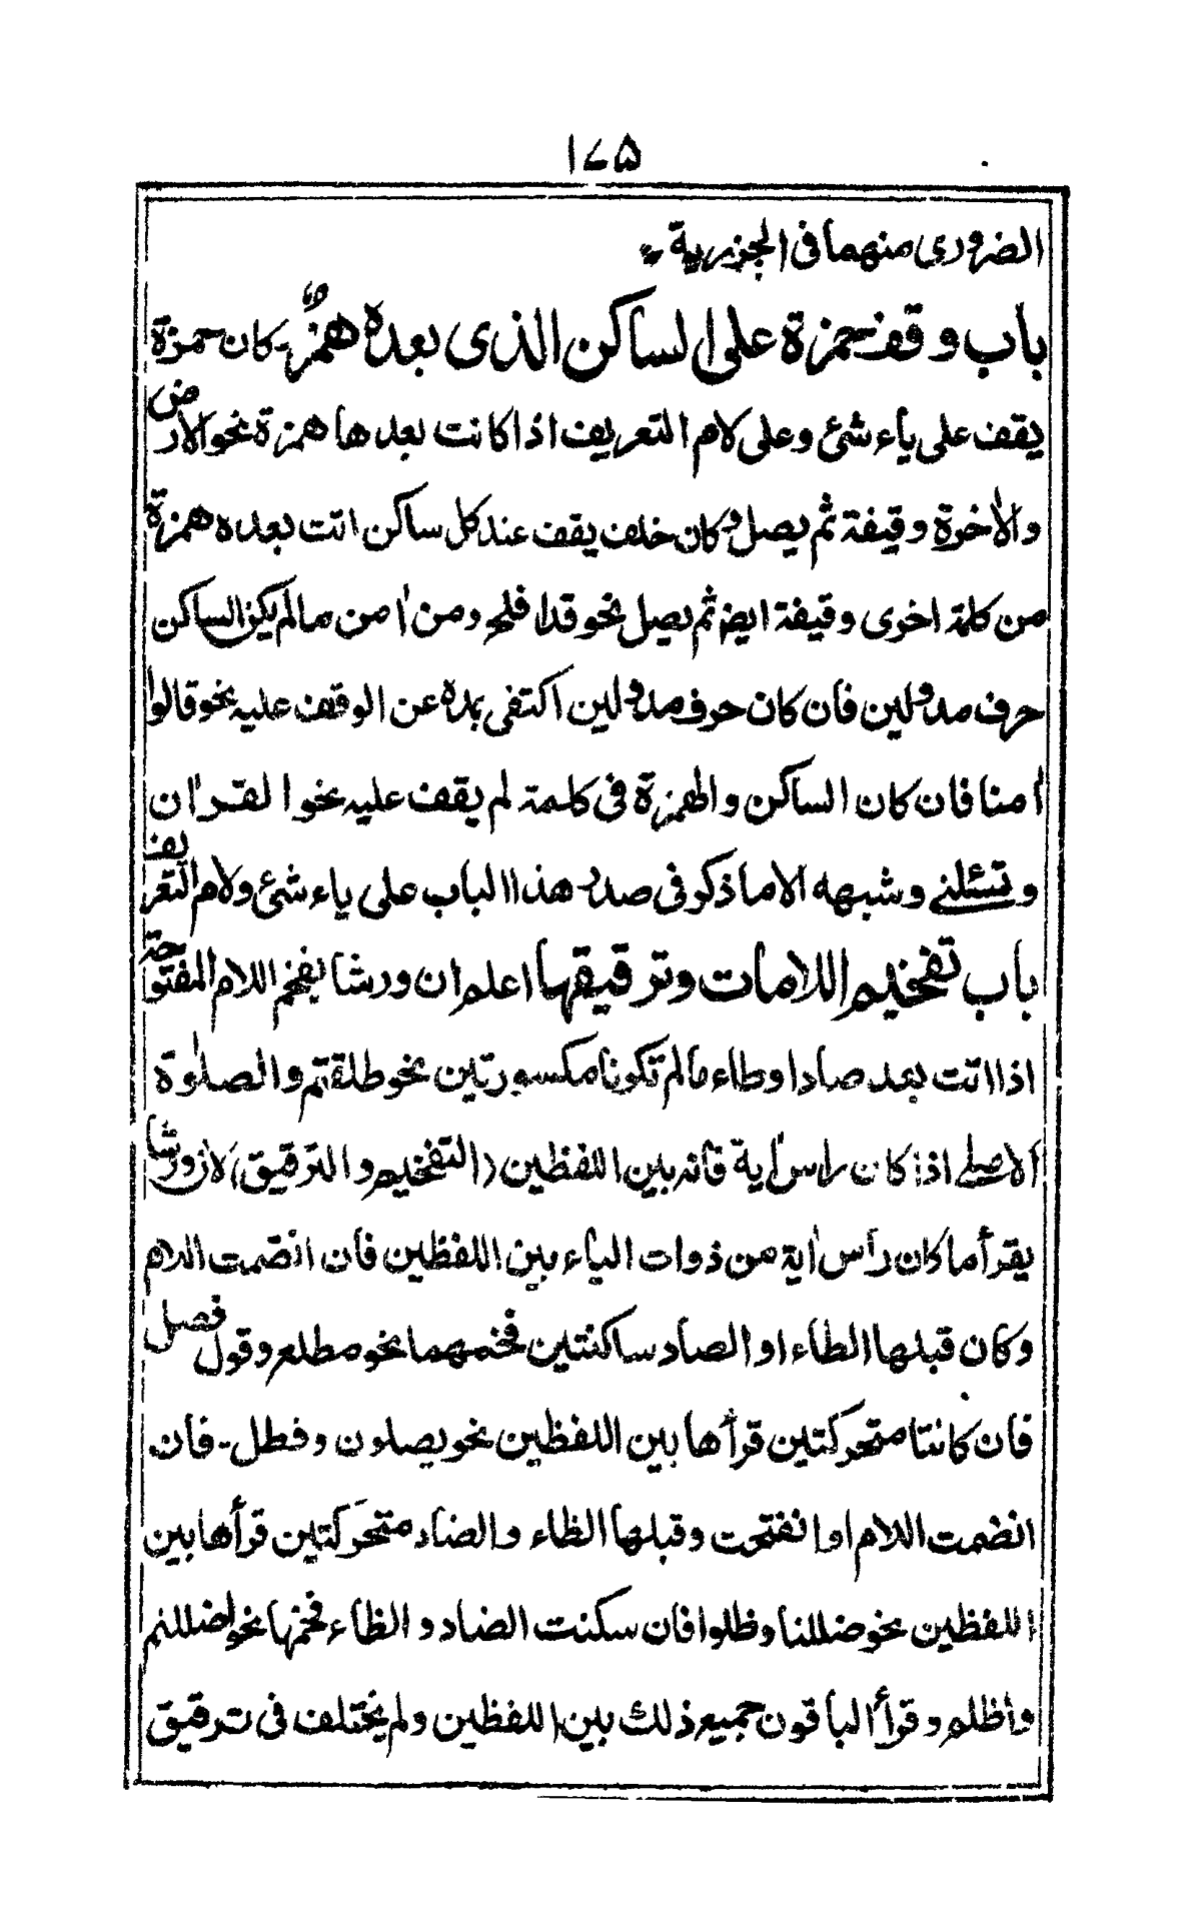 ١٧٥
الضروری منهما فی الجزریة
باب وقف حمزة علی الساکن الذی بعده همزٌ - کان حمزة
یقف علی یاء شئ وعلی لام التعریف اذا کانت بعدها همزة نحو الارض
والاٰخرة وقیفة ثم یصل وکان خلف یقف عند کل ساکن اتت بعده همزة
من کلمة اخری وقیفة ایضا ثم یصل نحو قد افلح ومن اٰمن مالم یکن الساکن
حرف مد ولین فأن کان حرف مد ولین اکتفی بمده عن الوقف علیه نحو قالوا
اٰمنا فان کان الساکن والهمزة فی کلمة لم یقف علیه نحو القراٰن
وتسئلنی وشبهه الا ما ذکر فی صدر هذا الباب علی یاء شئ ولام التعریف
باب تفخیم اللامات وترقیقها اعلم ان ورشا یفخم اللام المفتوحة
اذا اتت بعد صاد او طاء مالم تکونا مکسورتین نحو طلقتم والصلوٰة
اذا کان رأس اٰیة فأنه بین اللفظین (التفخیم والترقیق) لان ورشا
یقرأ ما کان رأس اٰیة من ذوات الیاء بین اللفظین فأن انضمت اللام
وکان قبلها الطاء او الصاد ساکنتین فخمهما نحو مطلع وقول فصل
فان کانتا متحرکتین قرأها بین اللفظین نحو یصلون وفطل - فان
انضمت اللام او انفتحت وقبلها الظاء والضاد متحرکتین قرأها بین
اللفظین نحو ضللنا وظلوا فان سکنت الضاد والظاء فخمها نحو اضللتم
واظلم وقرأ الباقون جمیع ذلك بین اللفظین ولم یختلف فی ترقیق